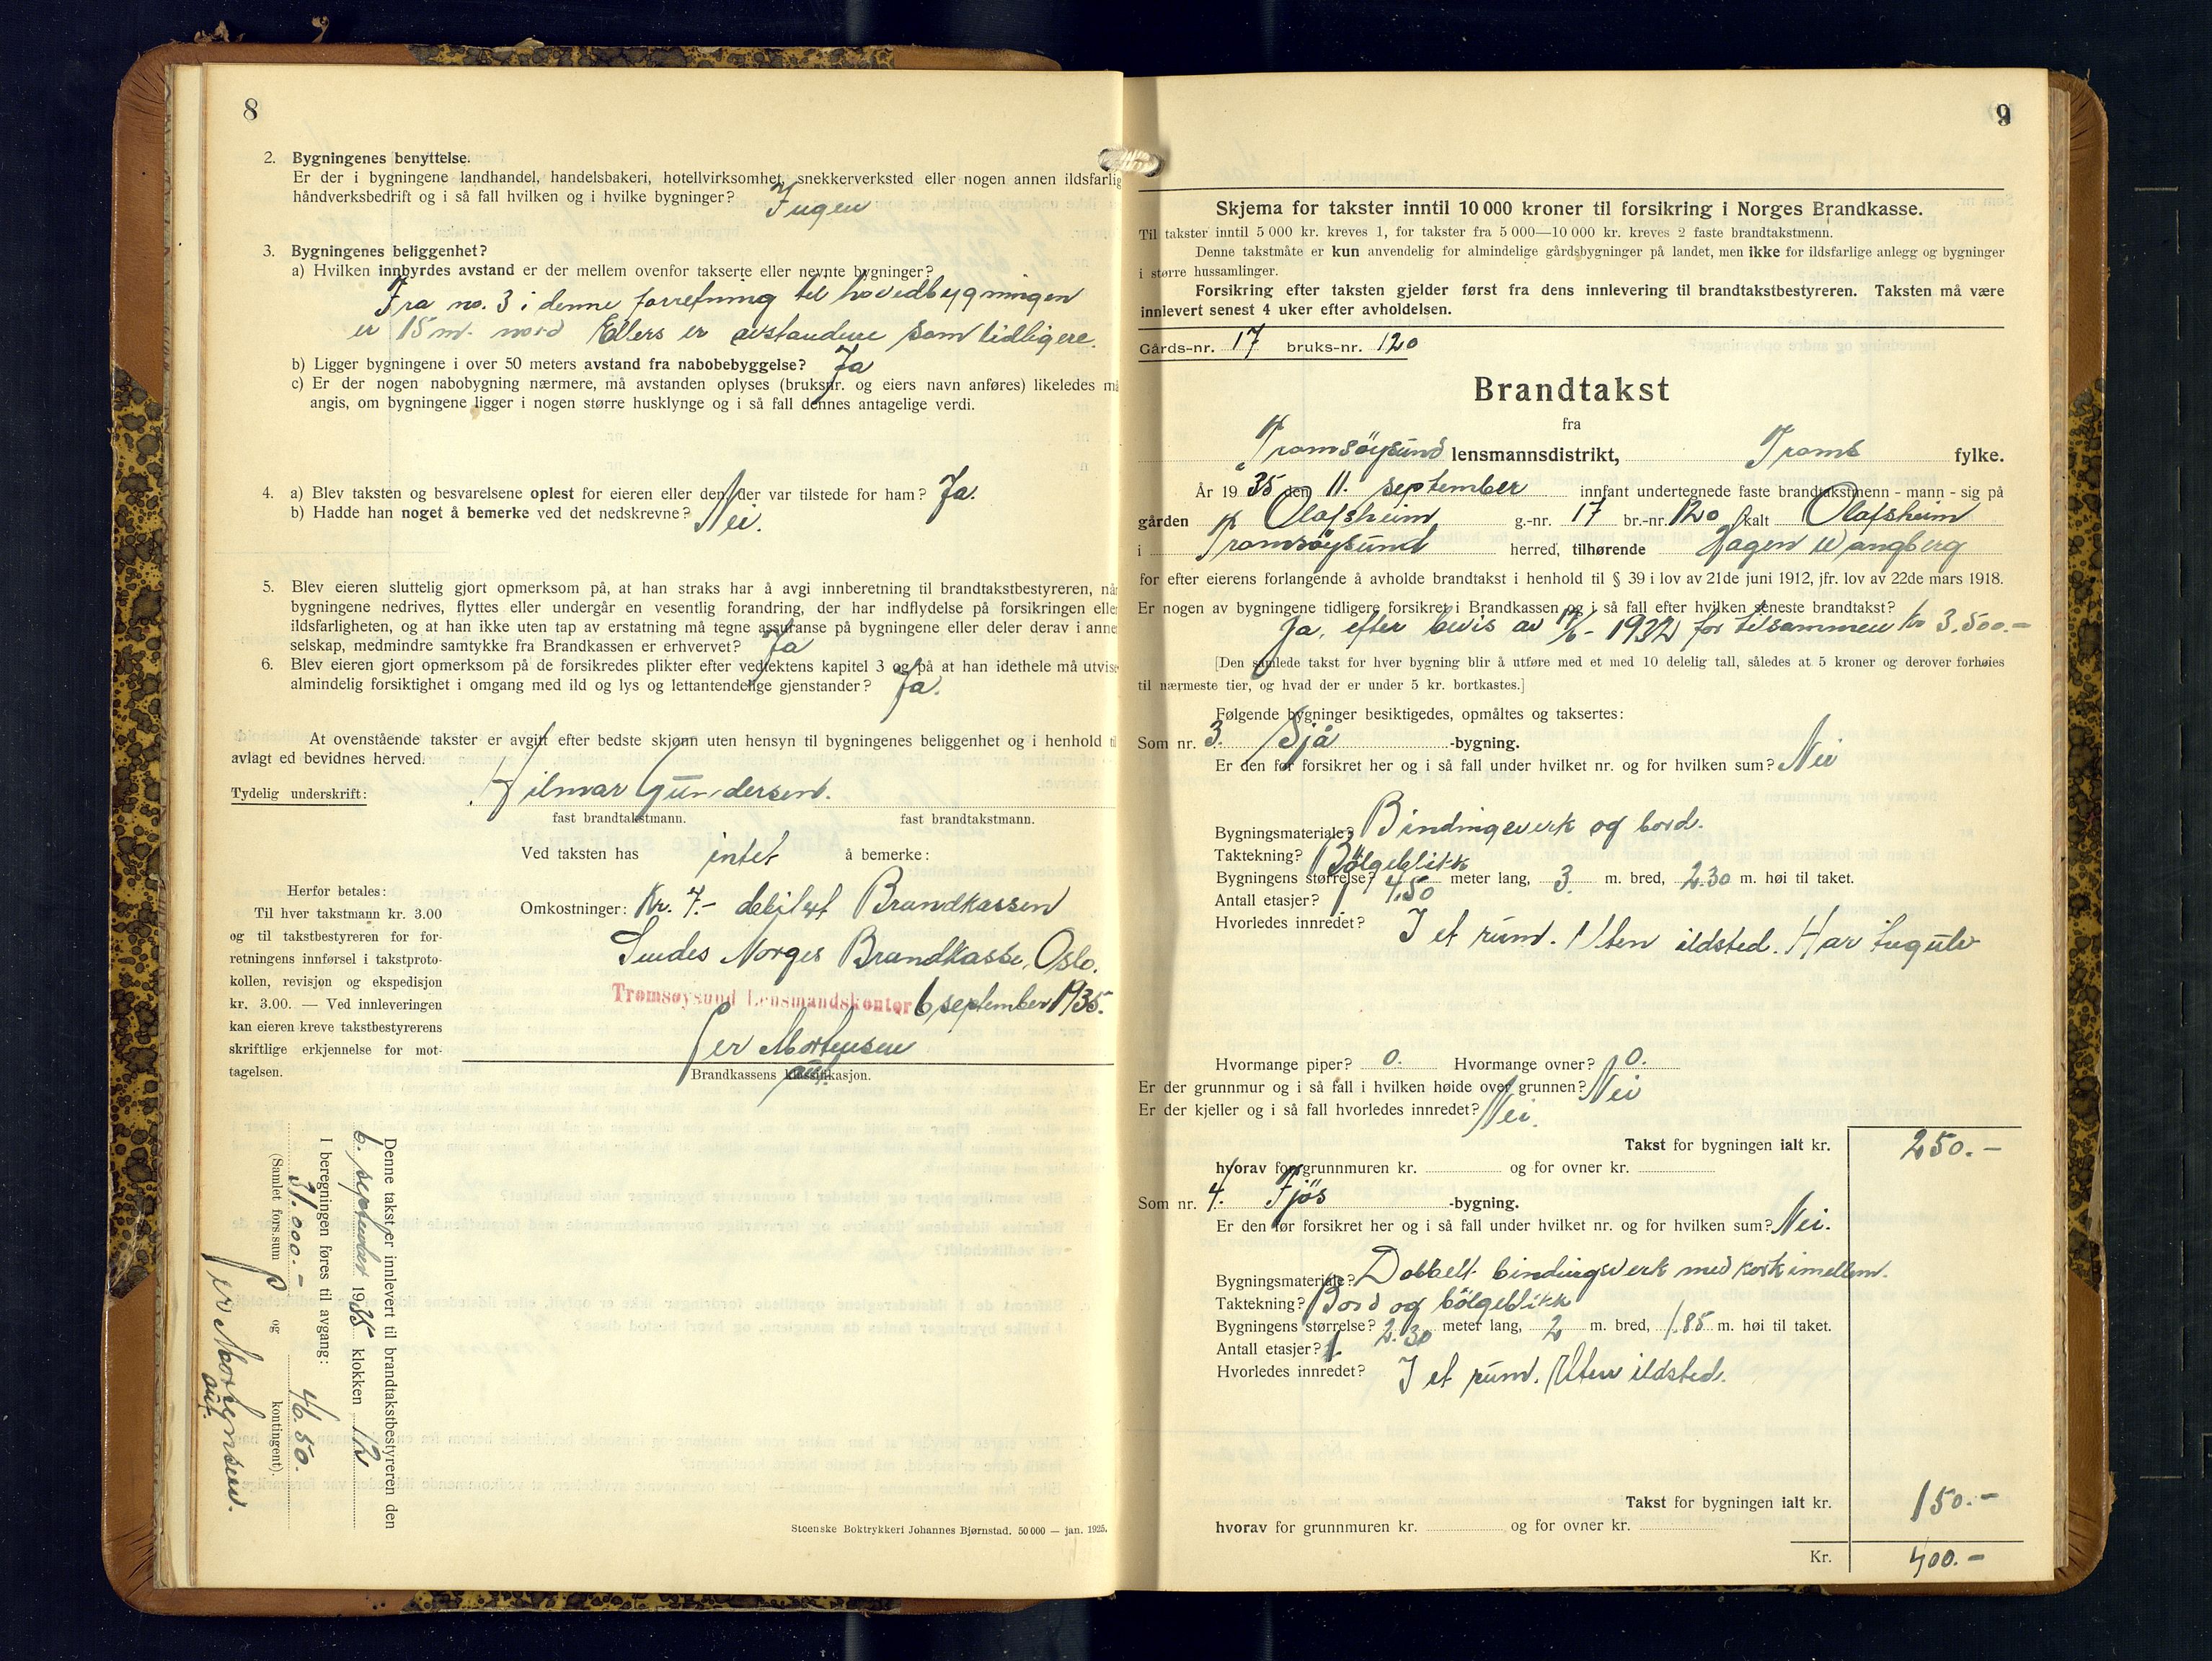 8
2. Bygningenes benyttelse.
Er der i bygningene landhandel, handelsbakeri, hotellvirksomhet, snekkerverksted eller nogen annen ildsfarlig
håndverksbedrift og i så fall hvilken og i hvilke bygninger? Ingen
3. Bygningenes beliggenhet?
a) Hvilken innbyrdes avstand er der mellem ovenfor takserte eller nevnte bygninger?
Fra no. 3 i denne forretning til hovedbygningen
er 15 m. nord Ellers er avstandene som tidligere.
b) Ligger bygningene i over 50 meters avstand fra nabobebyggelse? Ja
c) Er der nogen nabobygning nærmere, må avstanden oplyses (bruksnr. og eiers navn anføres) likeledes må
angis, om bygningene ligger i nogen større husklynge og i så fall dennes antagelige verdi.
4. a) Blev taksten og besvarelsene oplest for eieren eller den der var tilstede for ham? Ja.
b) Hadde han noget å bemerke ved det nedskrevne? Nei.
5. Blev eieren sluttelig gjort opmerksom på, at han straks har å avgi innberetning til brandtakstbestyreren, når
bygningene nedrives, flyttes eller undergår en vesentlig forandring, der har indflydelse på forsikringen eller
ildsfarligheten, og at han ikke uten tap av erstatning må tegne assuranse på bygningene eller deler derav i annet
selskap, medmindre samtykke fra Brandkassen er erhvervet? Ja
6. Blev eieren gjort opmerksom på de forsikredes plikter efter vedtektens kapitel 3 og på at han idethele må utvise
almindelig forsiktighet i omgang med ild og lys og lettantendelige gjenstander? Ja.
At ovenstående takster er avgitt efter bedste skjønn uten hensyn til bygningenes beliggenhet og i henhold til
avlagt ed bevidnes herved.
Tydelig underskrift: Hilmar Gundersen.
fast brandtakstmann. fast brandtakstmann.
Ved taksten has intet å bemerke:
Omkostninger: Kr. 7.- debitert Brandkassen
Sendes Norges Brandkasse, Oslo.
Tromsøysund Lensmandskontor 6 september 1935.
Per Mortensen
aut.
Brandkassens klassifikasjon.
Herfor betales:
Til hver takstmann kr. 3.00
og til takstbestyreren for for-
retningens innførsel i takstproto-
kollen, revisjon og ekspedisjon
kr. 3.00. — Ved innleveringen
kan eieren kreve takstbestyrerens
skriftlige erkjennelse for mot-
tagelsen.
Denne takst er innlevert til brandtakstbestyreren den
6. september 1935 klokken 12
I beregningen føres til avgang:
31.000.- 46.50.
(Samlet fors.sum og kontingent).
Per Mortensen.
aut.
Steenske Boktrykkeri Johannes Bjørnstad. 50 000 — jan. 1925.
9
Skjema for takster inntil 10 000 kroner til forsikring i Norges Brandkasse.
Til takster inntil 5 000 kr. kreves 1, for takster fra 5 000—10 000 kr. kreves 2 faste brandtakstmenn.
Denne takstmåte er kun anvendelig for almindelige gårdsbygninger på landet, men ikke for ildsfarlige anlegg og bygninger
i større hussamlinger.
Forsikring efter taksten gjelder først fra dens innlevering til brandtakstbestyreren. Taksten må være
innlevert senest 4 uker efter avholdelsen.
Gårds-nr. 17 bruks-nr. 120
Brandtakst
fra
Tromsöysund lensmannsdistrikt, Troms fylke.
År 1935 den 11. september innfant undertegnede faste brandtakstmenn - mann - sig på
gården Olafsheim g.-nr. 17 br.-nr. 120 kalt Olafsheim
i Tromsöysund herred, tilhørende Hagen Wangberg
for efter eierens forlangende å avholde brandtakst i henhold til § 39 i lov av 21de juni 1912, jfr. lov av 22de mars 1918.
Er nogen av bygningene tidligere forsikret i Brandkassen og i så fall efter hvilken seneste brandtakst?
Ja, efter bevis av 17/6 - 1932 for tilsammen kr 3.500.-
[Den samlede takst for hver bygning blir å utføre med et med 10 delelig tall, således at 5 kroner og derover forhøies
til nærmeste tier, og hvad der er under 5 kr. bortkastes.]
Følgende bygninger besiktigedes, opmåltes og taksertes:
Som nr. 3. Sjå -bygning.
Er den før forsikret her og i så fall under hvilket nr. og for hvilken sum? Nei
Bygningsmateriale? Bindingsverk og bord.
Taktekning? Bölgeblikk
Bygningens størrelse? 4,50 meter lang, 3. m. bred, 2.30 m. høi til taket.
Antall etasjer? 1
Hvorledes innredet? I et rum. Uten ildsted. Har
Hvormange piper? 0. Hvormange ovner? 0.
Er der grunnmur og i så fall i hvilken høide over grunnen? Nei
Er der kjeller og i så fall hvorledes innredet? Nei.
Takst for bygningen ialt kr. 250.-
hvorav for grunnmuren kr. og for ovner kr.
Som nr. 4. Fjös -bygning.
Er den før forsikret her og i så fall under hvilket nr. og for hvilken sum? Nei.
Bygningsmateriale? Dobbelt bindingsverk med kork imellem.
Taktekning? Bord og bölgeblikk
Bygningens størrelse? 2.30 meter lang, 2 m. bred, 1.85 m. høi til taket.
Antall etasjer? 1
Hvorledes innredet? I et rum. Uten ildsted.
Takst for bygningen ialt kr. 150.-
hvorav for grunnmuren kr. og for ovner kr.
Kr. 400.-